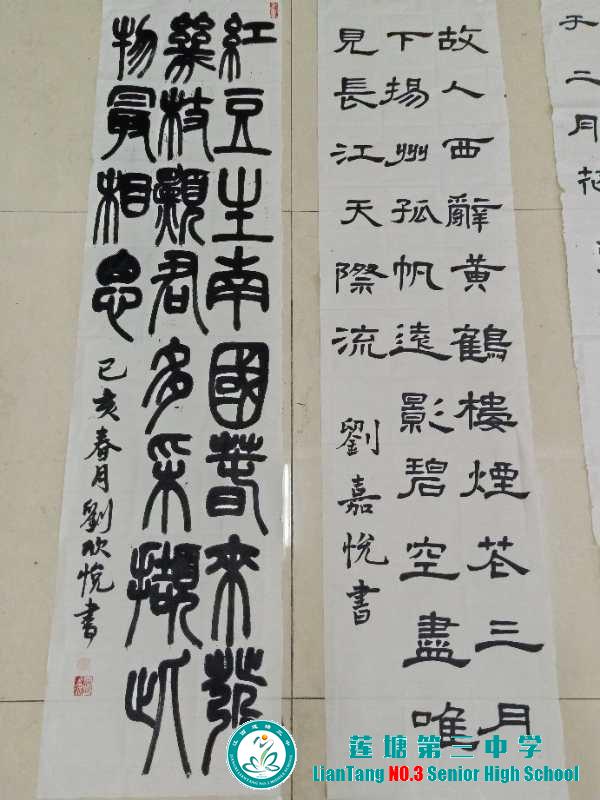 于二月花
故人西辭黃鶴樓煙花三月
下揚州孤帆遠影碧空盡唯
見長江天際流
劉嘉悅書
紅豆生南國春來發
幾枝願君多采擷此
物最相思
己亥春月劉欣悅書
莲塘第三中学
LianTang NO.3 Senior High School